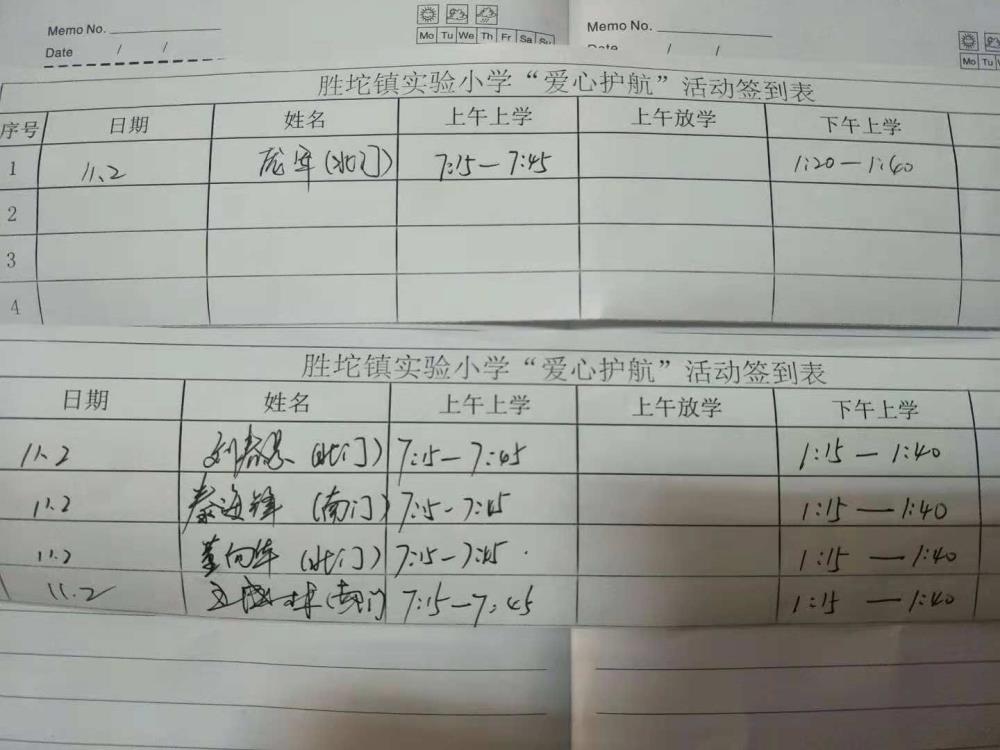 Memo No.
Date / /
Mo Tu We Th Fr Sa Su
Memo No.
Date / /
Mo Tu
胜坨镇实验小学“爱心护航”活动签到表
序号 日期 姓名 上午上学 上午放学 下午上学
1 11.2 庞军(北门) 7:15—7:45 1:20—1:40
2
3
4
胜坨镇实验小学“爱心护航”活动签到表
日期 姓名 上午上学 上午放学 下午上学
11.2 (北门) 7:15—7:45 1:15—1:40
11.2 秦海锋 (南门) 7:15-7:45 1:15—1:40
11.2 董向华 (北门) 7:15-7:45 1:15—1:40
11.2 (南门) 7:15—7:45 1:15—1:40